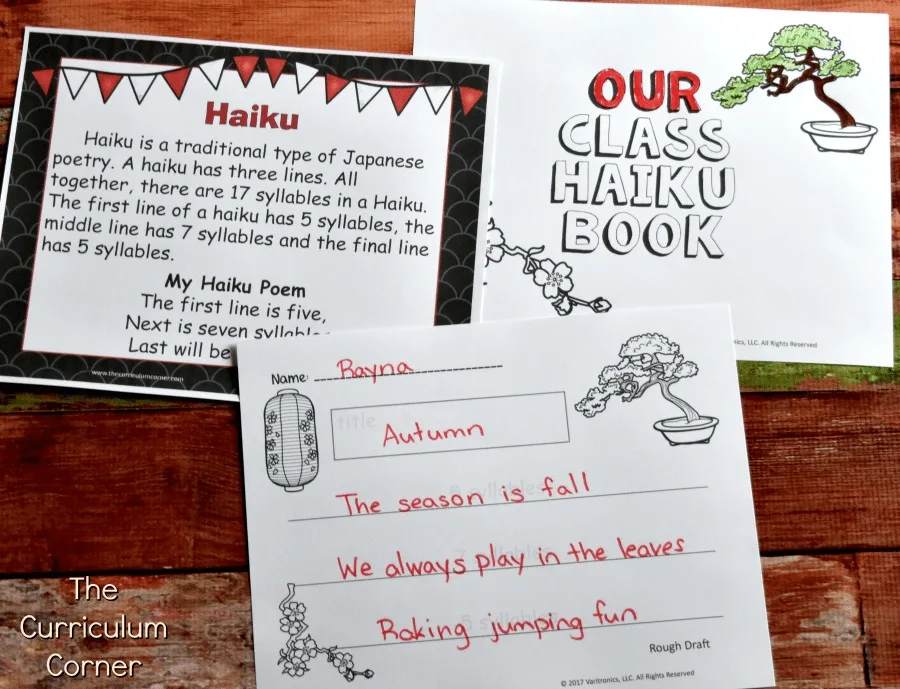 Haiku
Haiku is a traditional type of Japanese
poetry. A haiku has three lines. All
together, there are 17 syllables in a Haiku.
The first line of a haiku has 5 syllables, the
middle line has 7 syllables and the final line
has 5 syllables.
My Haiku Poem
The first line is five,
Next is seven
Last will be
www.thecurriculumcorner.com
OUR
CLASS
HAIKU
BOOK
LLC. All Rights Reserved
Name: Rayna
title
Autumn
5 syllables
The season is fall
We always play in the leaves
5 syllables
Raking jumping fun
Rough Draft
© 2017 Varitronics, LLC. All Rights Reserved
The
Curriculum
Corner